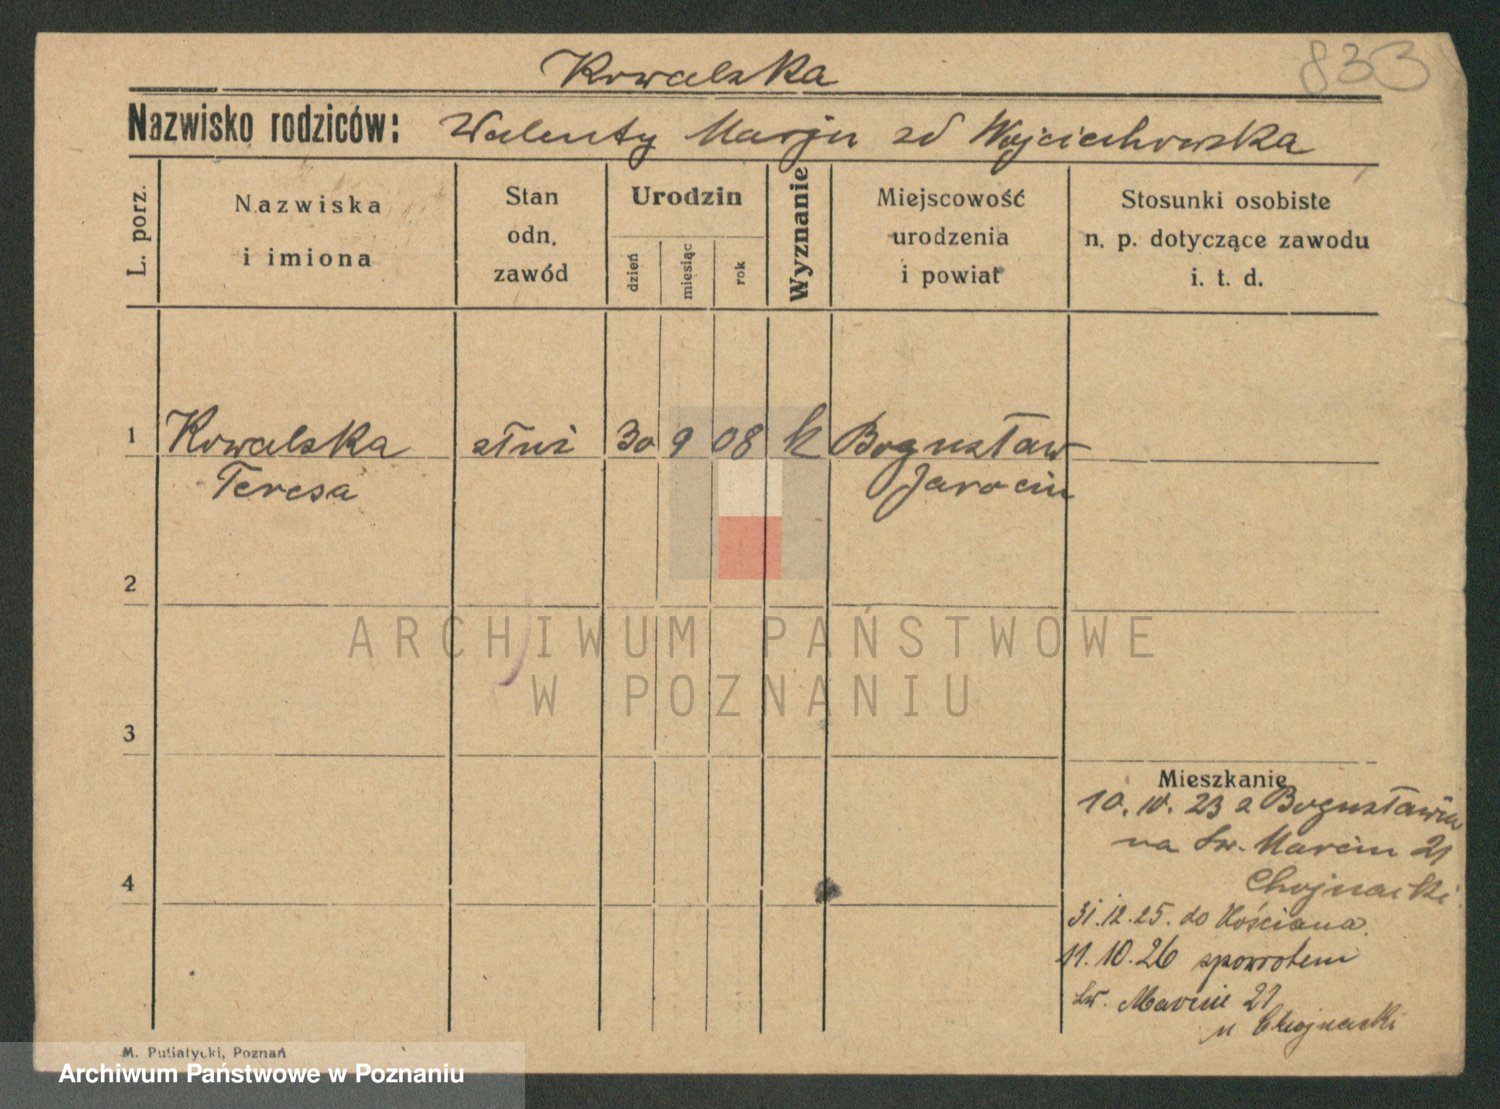 833
Kowalska
Nazwisko rodziców: Walenty Marja zd Wojciechowska
L. porz.
Nazwiska
i imiona
Stan
odn.
zawód
Urodzin
dzień
miesiąc
rok
Wyznanie
Miejscowość
urodzenia
i powiat
Stosunki osobiste
n. p. dotyczące zawodu
i. t. d.
1 Kowalska służ 30 9 08 k Bogusław
Teresa Jarocin
2
ARCHIWUM PAŃSTWOWE
W POZNANIU
3
Mieszkanie
10. IV. 23 z Bogusławia
na Św. Marcin 21
Chojnacki
4
31.12.25. do Kościana
11.10.26 spowrotem
Św. Marcin 21
u Chojnacki
M. Putiatycki, Poznań
Archiwum Państwowe w Poznaniu